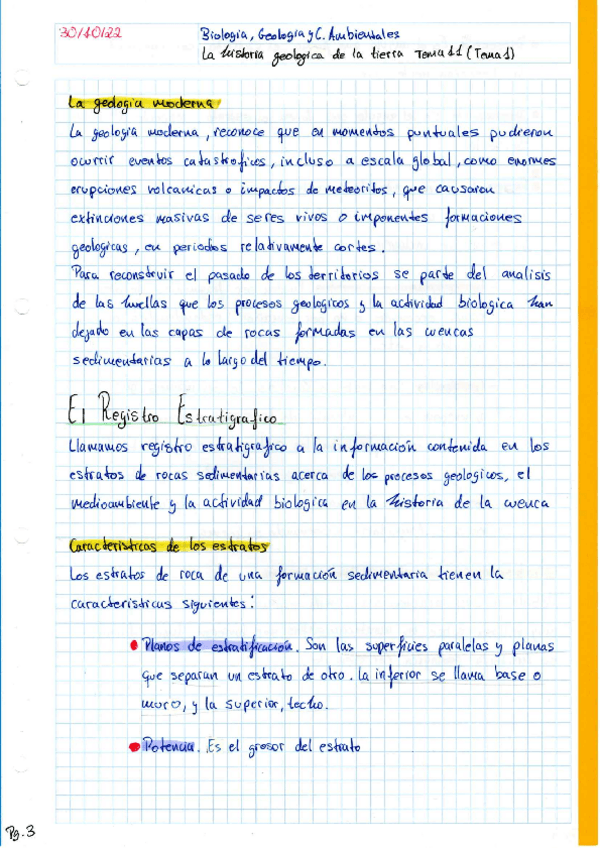 30/10/22
Biología, Geología y C. Ambientales
La historia geologica de la tierra Tema 11 (Tema 1)
La geologia moderna
La geologia moderna, reconoce que en momentos puntuales pudieron
ocurrir eventos catastrofícos, incluso a escala global, como enormes
erupciones volcanicas o impactos de meteoritos, que causaron
extinciones masivas de seres vivos o imponentes formaciones
geologicas, en periodos relativamente cortes.
Para reconstruir el pasado de los territorios se parte del analisis
de las huellas que los procesos geologicos y la actividad biologica han
dejado en las capas de rocas formadas en las cuencas
sedimentarias a lo largo del tiempo.
El Registro Estratigrafico
Llamamos registro estratigrafico a la información contenida en los
estratos de rocas sedimentarias acerca de los procesos geologicos, el
medioambiente y la actividad biologica en la historia de la cuenca
Caracteristicas de los estratos
Los estratos de roca de una formación sedimentaria tienen la
caracteristicas siguientes:
Planos de estratificación. Son las superficies paralelas y planas
que separan un estrato de otro. la inferior se llama base o
muro, y la superior, techo.
Potencia. Es el grosor del estrato
Pg. 3